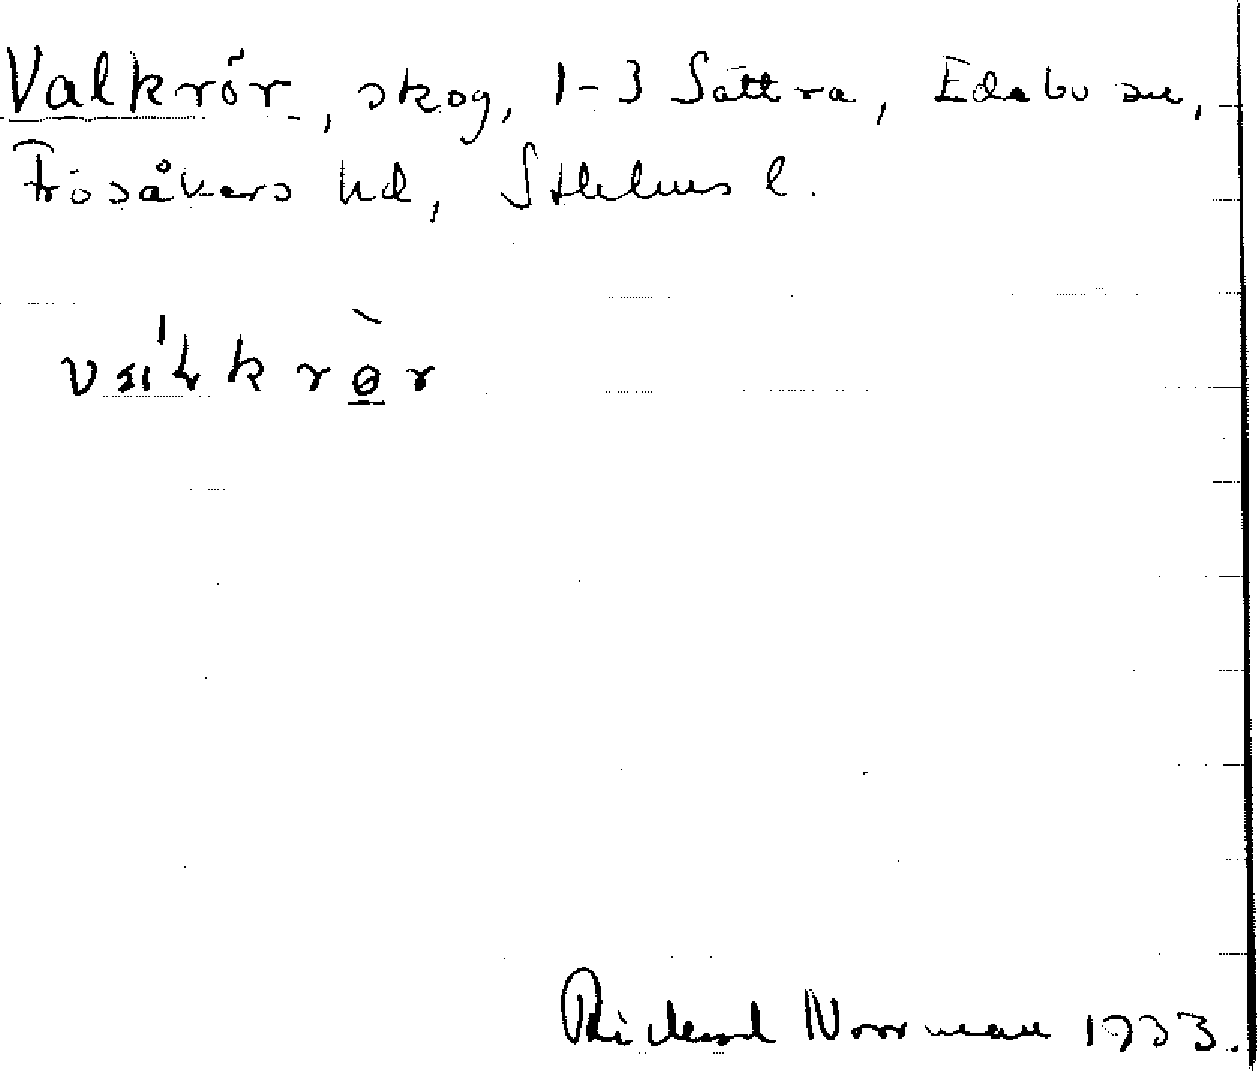 Valkrör, skog, 1-3 Sättra, Edebo sn,
Frösåkers hd, Sthlms l.
Rickard Norrman 1933.